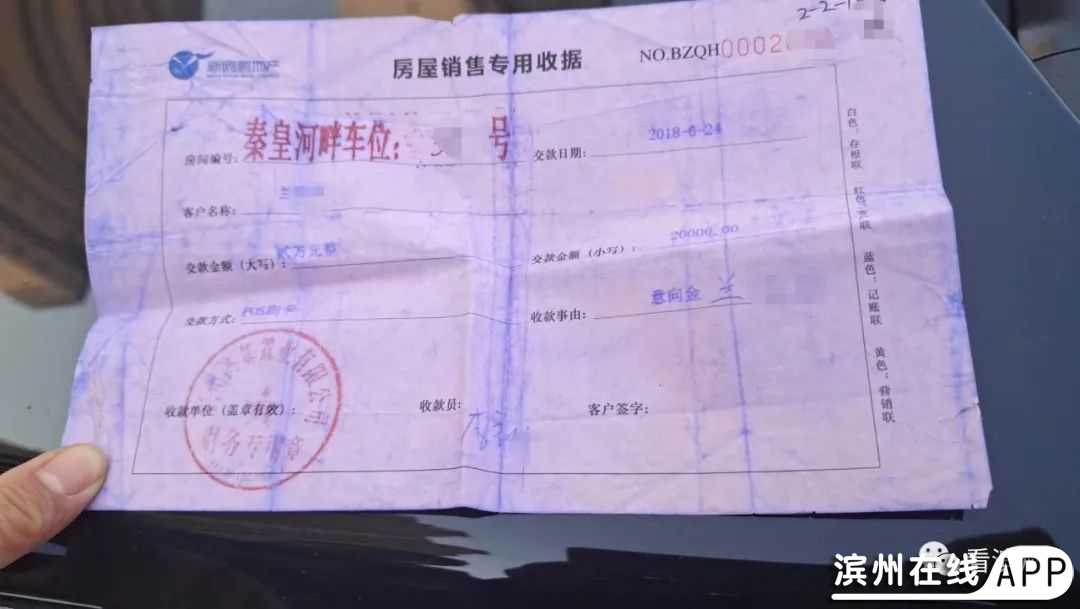 2-2-1
房屋销售专用收据
NO.BZQH0002
房间编号: 秦皇河畔车位: 号
交款日期: 2018-6-24
客户名称: 兰
交款金额（大写）: 贰万元整
交款金额（小写）: 20000.00
交款方式: POS刷卡
收款事由: 意向金 兰
收款单位（盖章有效）:
收款员:
客户签字:
置业有限公司
财务专用章
白色: 存根联 红色: 联 蓝色: 记账联 黄色: 营销联
看滨州
滨州在线APP